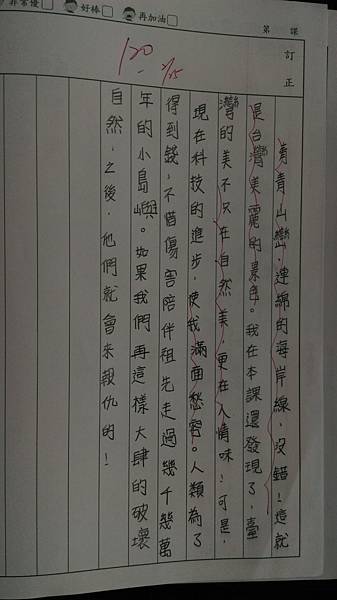 非常優
好棒
再加油
第 課
訂正
青青山巒、連綿的海岸線，沒錯！這就
是台灣美麗的景色。我在本課還發現了，臺
灣的美不只在自然美，更在人情味！可是，
現在科技的進步，使我滿面愁容。人類為了
得到錢，不惜傷害陪伴祖先走過幾千幾萬
年的小島嶼。如果我們再這樣大肆的破壞
自然，之後，他們就會來報仇的！
120